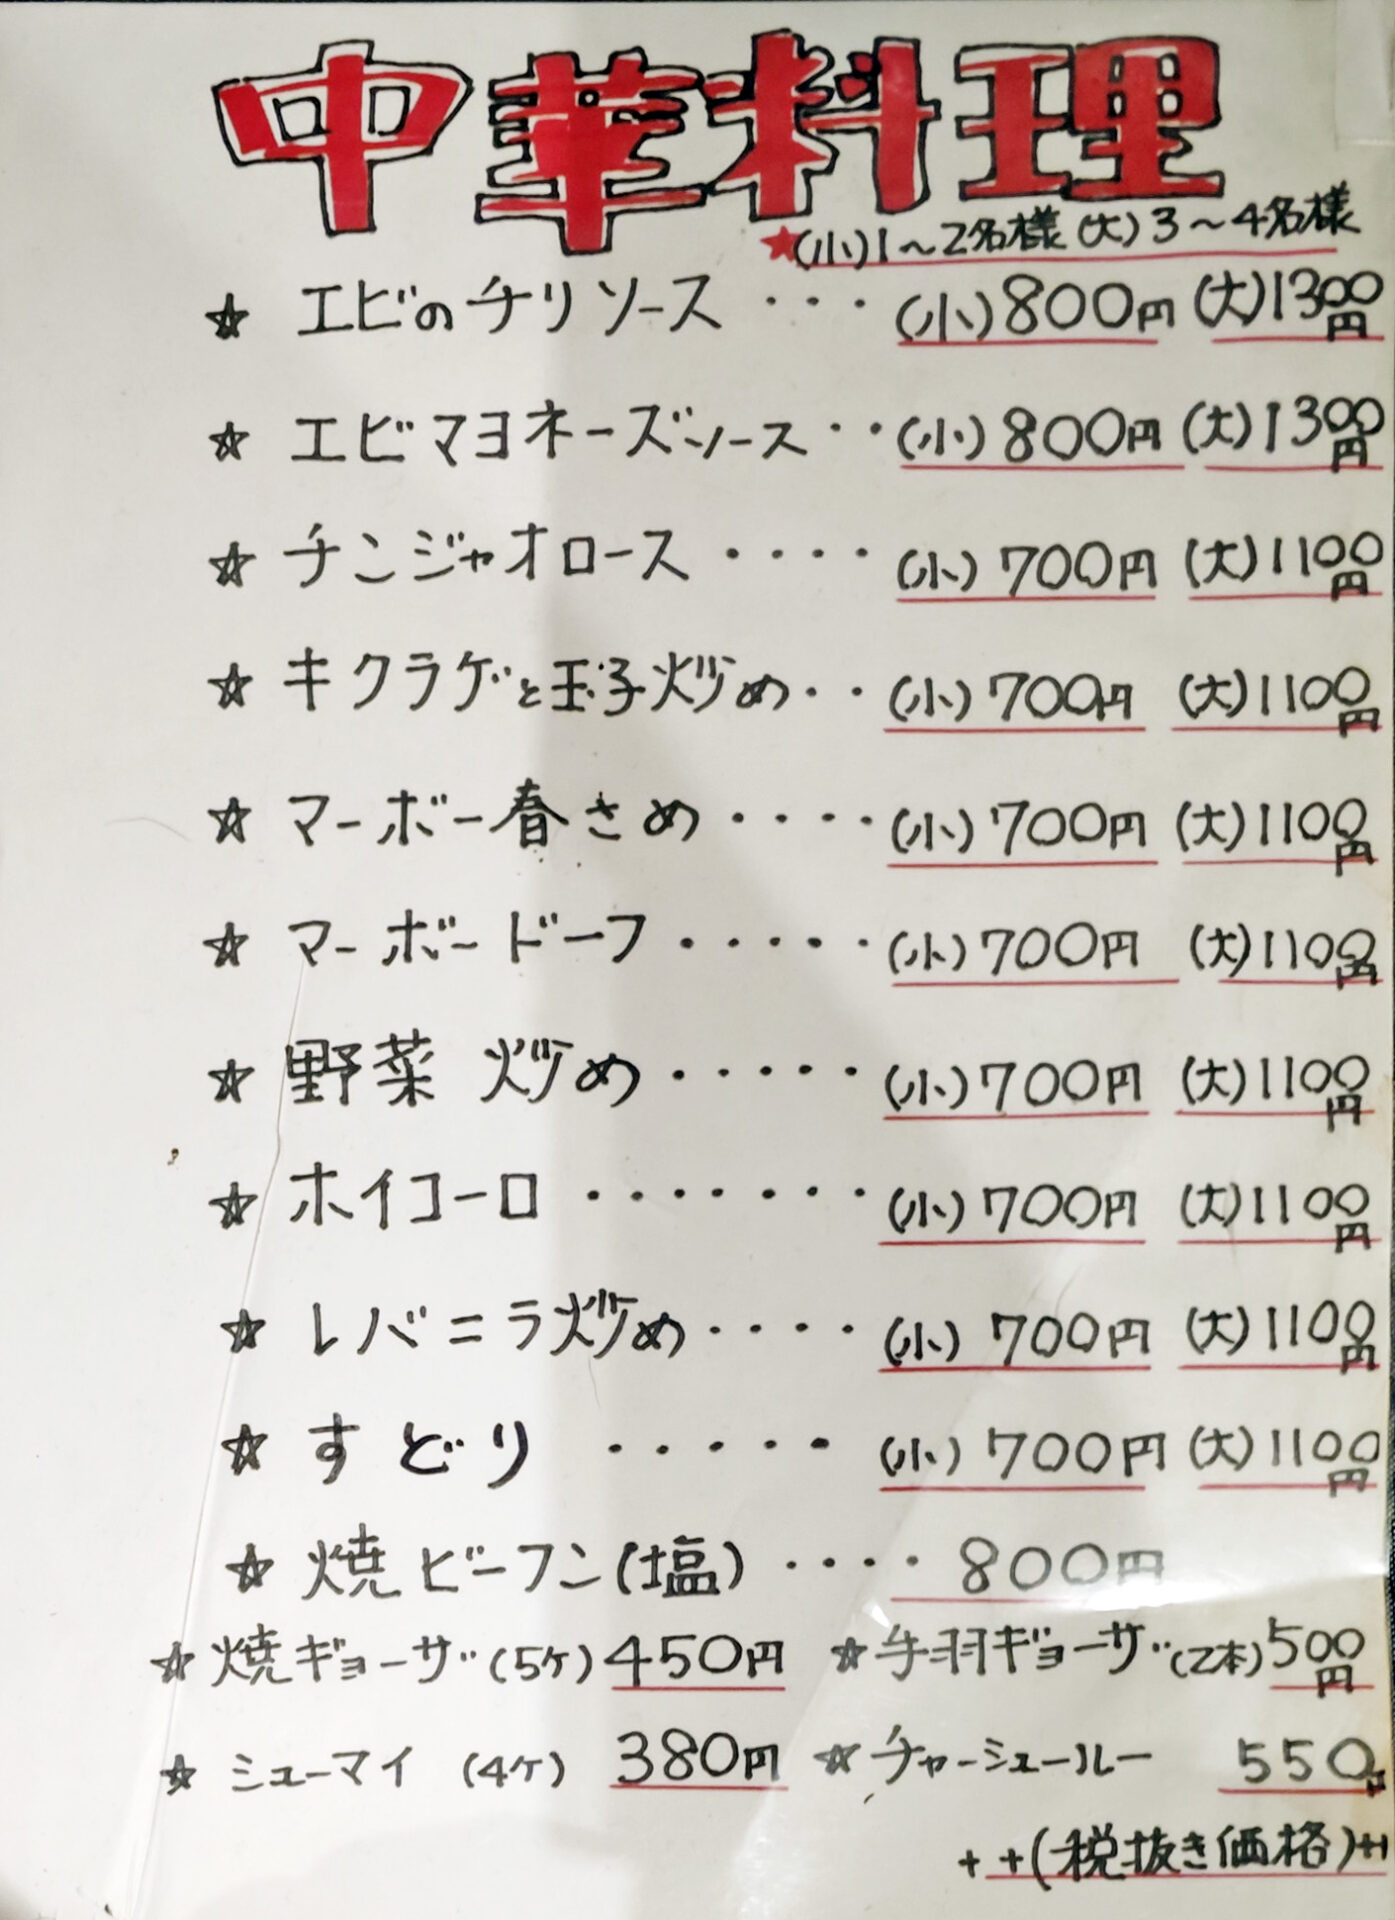 中華料理
★(小)1～2名様(大)3～4名様
☆ エビのチリソース・・・(小)800円(大)1300円
☆ エビマヨネーズソース・・(小)800円(大)1300円
☆ チンジャオロース・・・・(小)700円(大)1100円
☆ キクラゲと玉子炒め・・(小)700円(大)1100円
☆ マーボー春さめ・・・・(小)700円(大)1100円
☆ マーボードーフ・・・・・(小)700円(大)1100円
☆ 野菜炒め・・・・・(小)700円(大)1100円
☆ ホイコーロ・・・・・・・(小)700円(大)1100円
☆ レバニラ炒め・・・・(小)700円(大)1100円
☆ すどり・・・・・(小)700円(大)1100円
☆ 焼ビーフン(塩)・・・・800円
☆ 焼ギョーザ(5ケ)450円 ☆手羽ギョーザ(2本)500円
☆ シューマイ(4ケ)380円 ☆チャーシュールー 550円
++(税抜き価格)++